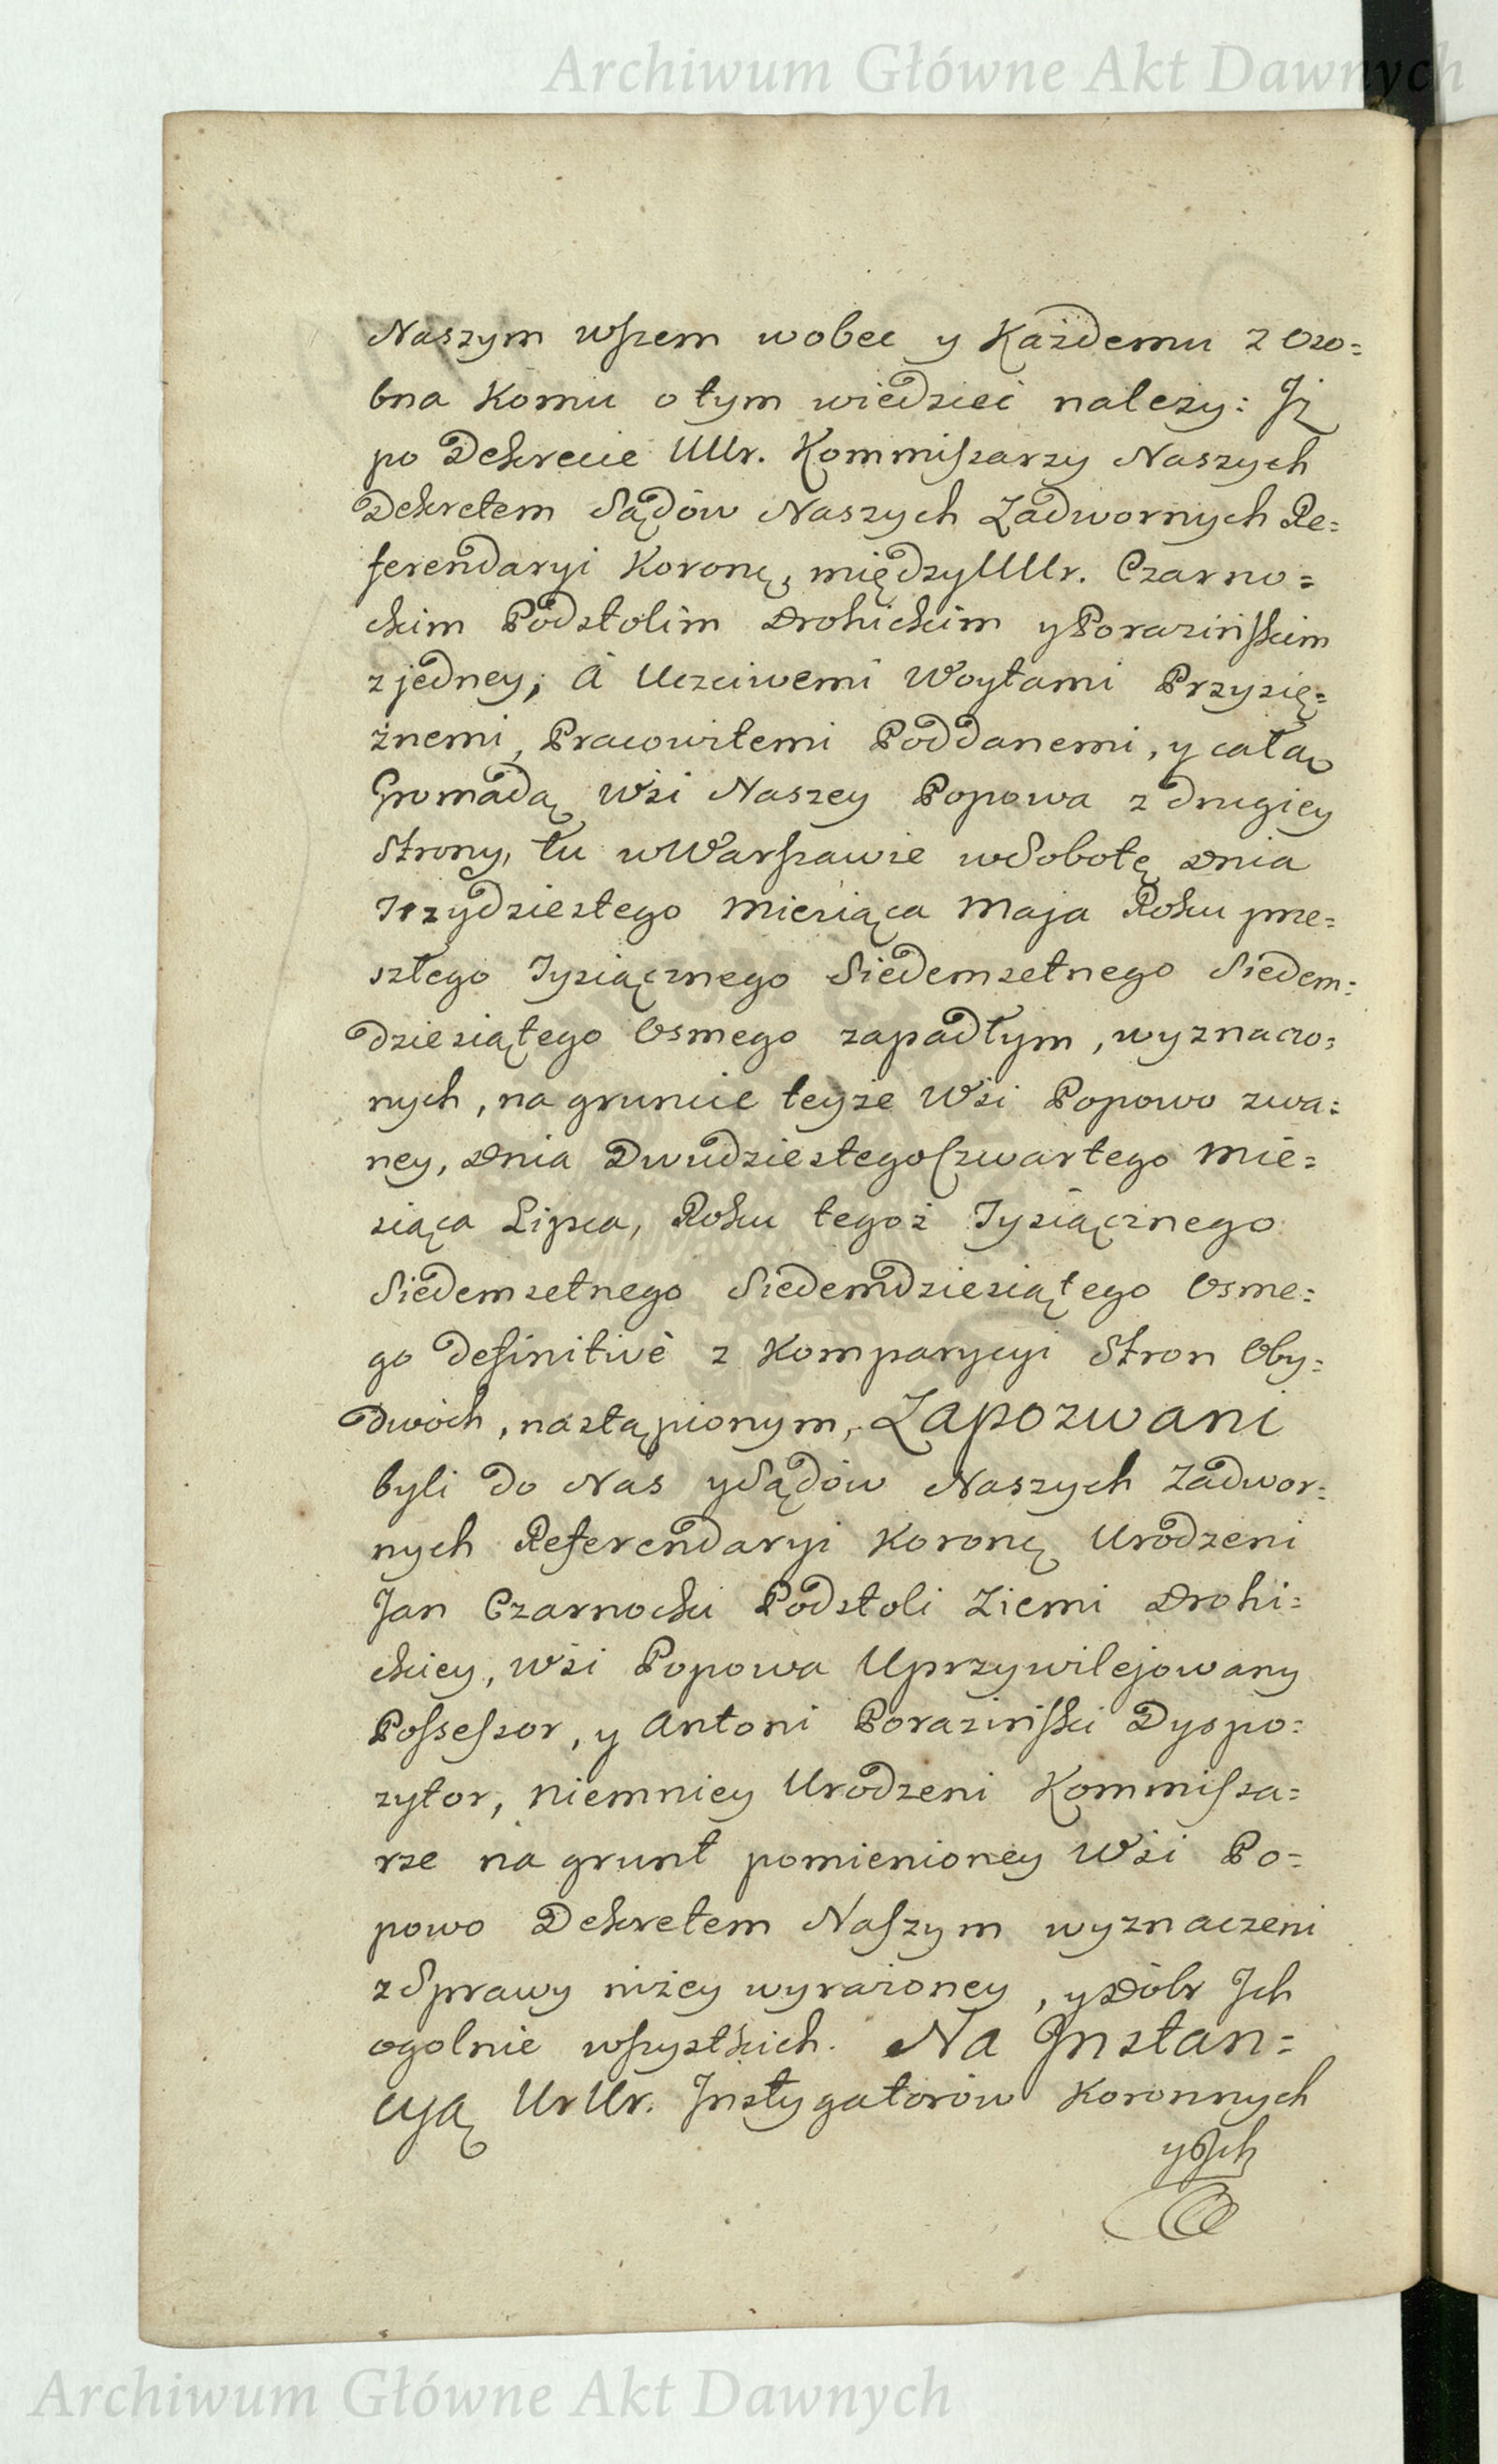 Archiwum Główne Akt Dawnych
Naszym wszem wobec y Każdemu z Oso=
bna Komu o tym wiedzieć należy: Jż
po Dekrecie UUr. Kommissarzy Naszych
Dekretem Sądów Naszych Zadwornych Re=
ferendaryi Koronę, między UUr. Czarno=
ckim Podstolim Drohickim y Porazińskim
z jedney, A Uczciwemi Woytami Przysię=
żnemi, Pracowitemi Poddanemi, y całą
Gromadą Wsi Naszey Popowa z drugiey
Strony, tu w Warszawie w Sobotę Dnia
Trzydziestego Miesiąca Maja Roku prze=
szłego Tysiącznego Siedemsetnego Siedem=
dziesiątego Osmego zapadłym, wyznaczo=
nych, na gruncie teyże Wsi Popowo zwa=
ney, Dnia Dwudziestego Czwartego Mie=
siąca Lipca, Roku tegoż Tysiącznego
Siedemsetnego Siedemdziesiątego Osme=
go definitivè z Komparycyi Stron Oby=
dwóch, nastąpionym, Zapozwani
byli do Nas y Sądów Naszych Zadwor=
nych Referendaryi Koronę Urodzeni
Jan Czarnocki Podstoli Ziemi Drohi=
ckiey, Wsi Popowa Uprzywilejowany
Possessor, y Antoni Poraziński Dyspo=
zytor, niemniey Urodzeni Kommissa=
rze na grunt pomienioney Wsi Po=
powo Dekretem Naszym wyznaczeni
z Sprawy niżey wyrażoney, y Dóbr Jch
ogolnie wszystkich. Na Jnstan=
cyą UrUr. Jnstygatorów Koronnych
y Jch
Archiwum Główne Akt Dawnych